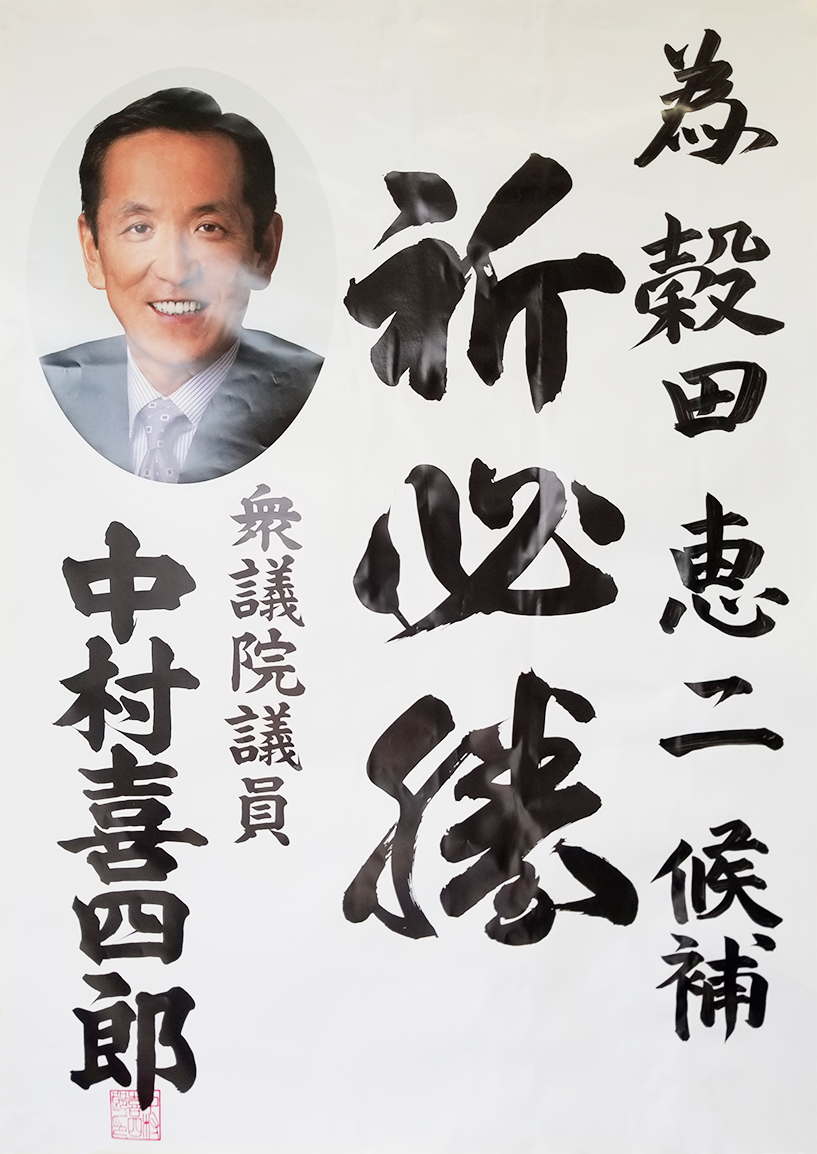 為 穀田 恵二 候補
祈必勝
衆議院議員
中村喜四郎